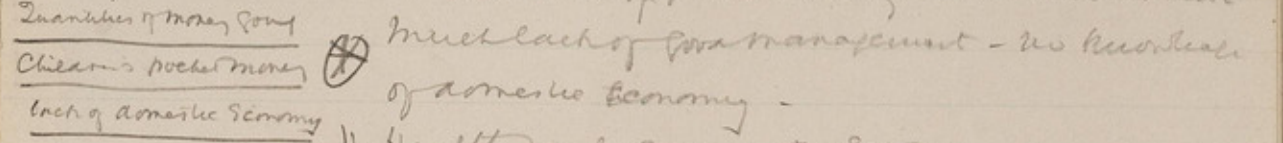 Quantities of money
Children's pocket money
lack of domestic Economy
Much lack of good management - no knowledge
of domestic Economy -